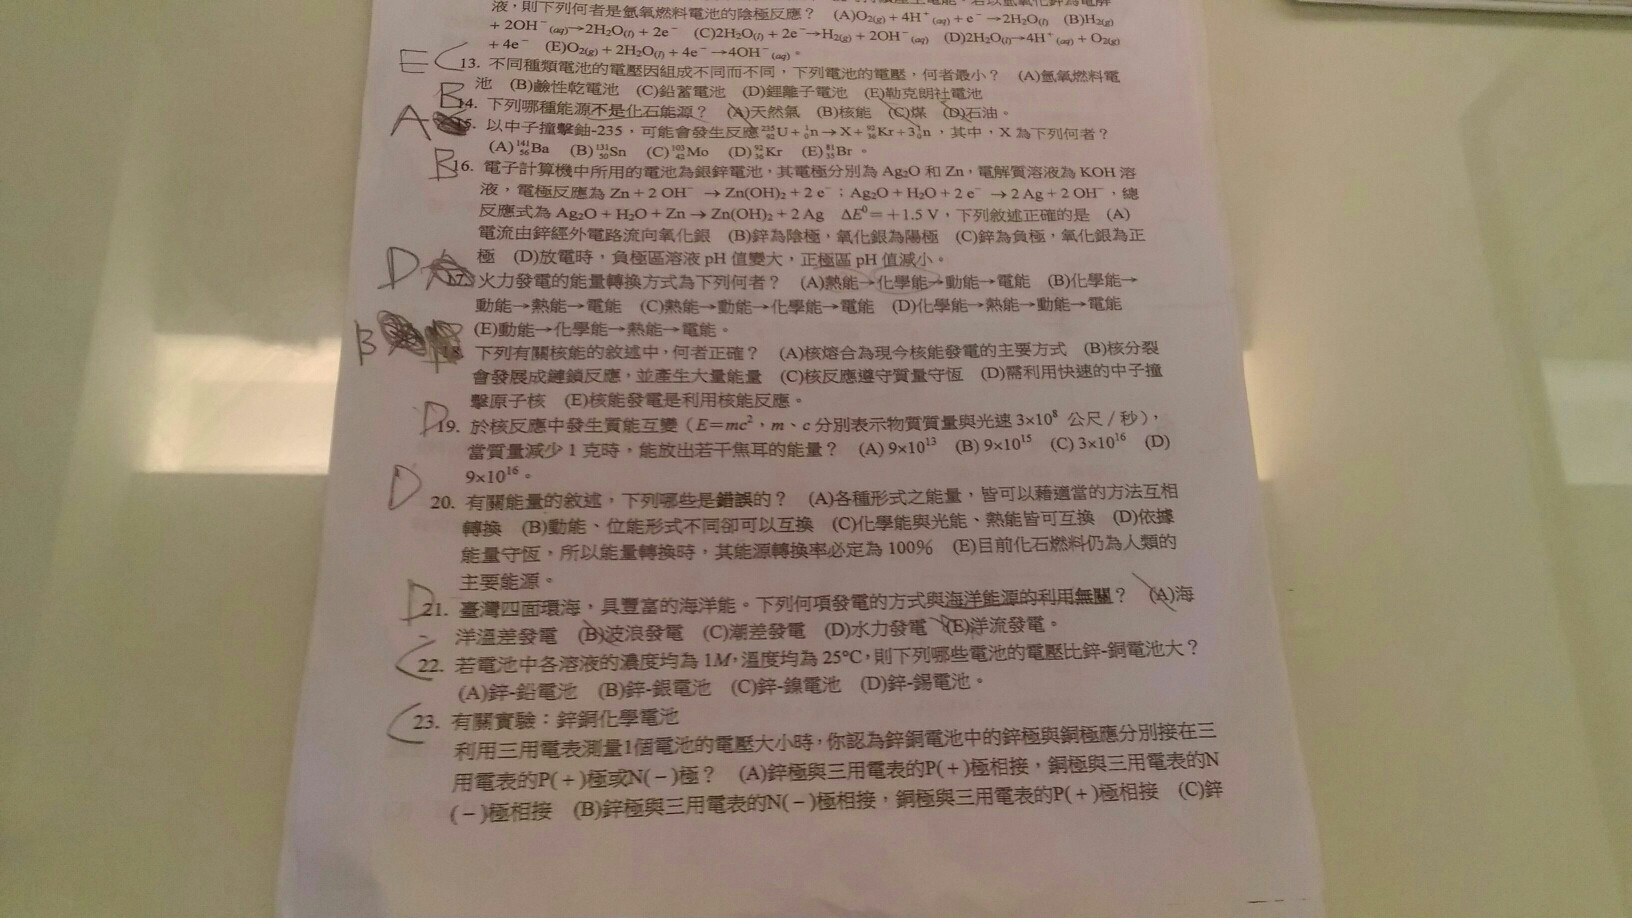 液，則下列何者是氫氧燃料電池的陰極反應？ (A)O₂(g) + 4H⁺(aq) + e⁻ →2H₂O(l) (B)H₂(g)
+ 2OH⁻(aq)→2H₂O(l) + 2e⁻ (C)2H₂O(l) + 2e⁻→H₂(g) + 2OH⁻(aq) (D)2H₂O(l)→4H⁺(aq) + O₂(g)
+ 4e⁻ (E)O₂(g) + 2H₂O(l) + 4e⁻→4OH⁻(aq)。
E 13. 不同種類電池的電壓因組成不同而不同，下列電池的電壓，何者最小？ (A)氫氧燃料電
池 (B)鹼性乾電池 (C)鉛蓄電池 (D)鋰離子電池 (E)勒克朗社電池
B 14. 下列哪種能源不是化石能源？ (A)天然氣 (B)核能 (C)煤 (D)石油。
A 15. 以中子撞擊鈾-235，可能會發生反應 ²³⁵₉₂U + ¹₀n → X + ⁹²₃₆Kr + 3¹₀n，其中，X 為下列何者？
(A) ¹⁴¹₅₆Ba (B) ¹³¹₅₀Sn (C) ¹⁰³₄₂Mo (D) ⁹²₃₆Kr (E) ⁸¹₃₅Br。
B 16. 電子計算機中所用的電池為銀鋅電池，其電極分別為 Ag₂O 和 Zn，電解質溶液為 KOH 溶
液，電極反應為 Zn + 2 OH⁻ → Zn(OH)₂ + 2 e⁻；Ag₂O + H₂O + 2 e⁻ → 2 Ag + 2 OH⁻，總
反應式為 Ag₂O + H₂O + Zn → Zn(OH)₂ + 2 Ag ΔE⁰ = +1.5 V，下列敘述正確的是 (A)
電流由鋅經外電路流向氧化銀 (B)鋅為陰極，氧化銀為陽極 (C)鋅為負極，氧化銀為正
極 (D)放電時，負極區溶液 pH 值變大，正極區 pH 值減小。
D 17. 火力發電的能量轉換方式為下列何者？ (A)熱能→化學能→動能→電能 (B)化學能→
動能→熱能→電能 (C)熱能→動能→化學能→電能 (D)化學能→熱能→動能→電能
(E)動能→化學能→熱能→電能。
B 18. 下列有關核能的敘述中，何者正確？ (A)核熔合為現今核能發電的主要方式 (B)核分裂
會發展成鏈鎖反應，並產生大量能量 (C)核反應遵守質量守恆 (D)需利用快速的中子撞
擊原子核 (E)核能發電是利用核能反應。
D 19. 於核反應中發生質能互變（E＝mc²，m、c 分別表示物質質量與光速 3×10⁸ 公尺／秒），
當質量減少 1 克時，能放出若干焦耳的能量？ (A) 9×10¹³ (B) 9×10¹⁵ (C) 3×10¹⁶ (D)
9×10¹⁶。
D 20. 有關能量的敘述，下列哪些是錯誤的？ (A)各種形式之能量，皆可以藉適當的方法互相
轉換 (B)動能、位能形式不同卻可以互換 (C)化學能與光能、熱能皆可互換 (D)依據
能量守恆，所以能量轉換時，其能源轉換率必定為 100% (E)目前化石燃料仍為人類的
主要能源。
D 21. 臺灣四面環海，具豐富的海洋能。下列何項發電的方式與海洋能源的利用無關？ (A)海
洋溫差發電 (B)波浪發電 (C)潮差發電 (D)水力發電 (E)洋流發電。
C 22. 若電池中各溶液的濃度均為 1M，溫度均為 25℃，則下列哪些電池的電壓比鋅-銅電池大？
(A)鋅-鉛電池 (B)鋅-銀電池 (C)鋅-鎳電池 (D)鋅-錫電池。
C 23. 有關實驗：鋅銅化學電池
利用三用電表測量1個電池的電壓大小時，你認為鋅銅電池中的鋅極與銅極應分別接在三
用電表的P(+)極或N(-)極？ (A)鋅極與三用電表的P(+)極相接，銅極與三用電表的N
(-)極相接 (B)鋅極與三用電表的N(-)極相接，銅極與三用電表的P(+)極相接 (C)鋅